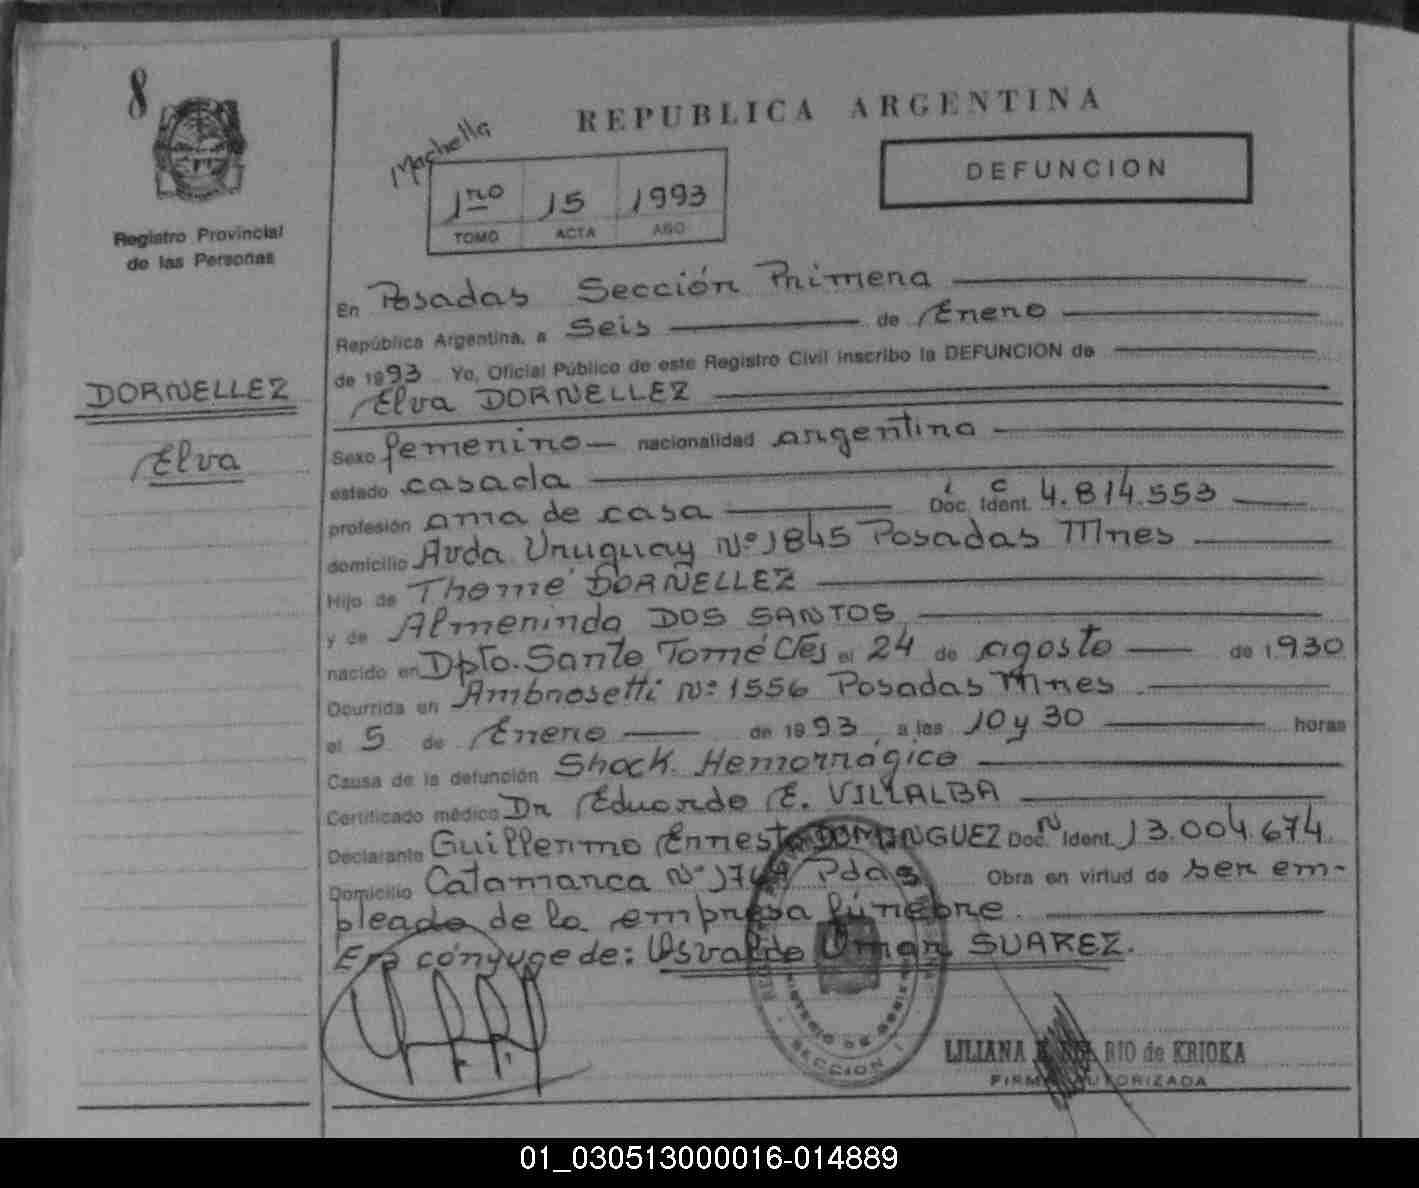 8
REPUBLICA ARGENTINA
Machella
DEFUNCION
1ro 15 1993
TOMO ACTA AÑO
Registro Provincial
de las Personas
En Posadas Sección Primera
República Argentina, a Seis de Enero
de 1993 Yo, Oficial Público de este Registro Civil inscribo la DEFUNCION de
DORNELLEZ
Elva
Elva DORNELLEZ
Sexo femenino nacionalidad argentina
estado casada
profesión ama de casa Doc. Ident. L C 4.814.553
domicilio Avda. Uruguay Nº 1845 Posadas Mnes
Hijo de Thomé DORNELLEZ
y de Almerinda DOS SANTOS
nacido en Dpto. Santo Tomé Ctes el 24 de agosto de 1930
Ocurrida en Ambrosetti Nº 1556 Posadas Mnes
el 5 de Enero de 1993, a las 10 y 30 horas
Causa de la defunción Shock Hemorrágico
Certificado médico Dr Eduardo E. VILLALBA
Declarante Guillermo Ernesto DOMINGUEZ Doc. N Ident. 13.004.674
Domicilio Catamarca Nº Pdas Obra en virtud de ser em-
pleado de la empresa fúnebre.
Era cónyuge de: Osvaldo Omar SUAREZ.
SECCION 1
LILIANA RIO de KRIOKA
FIRMA AUTORIZADA
01_030513000016-014889